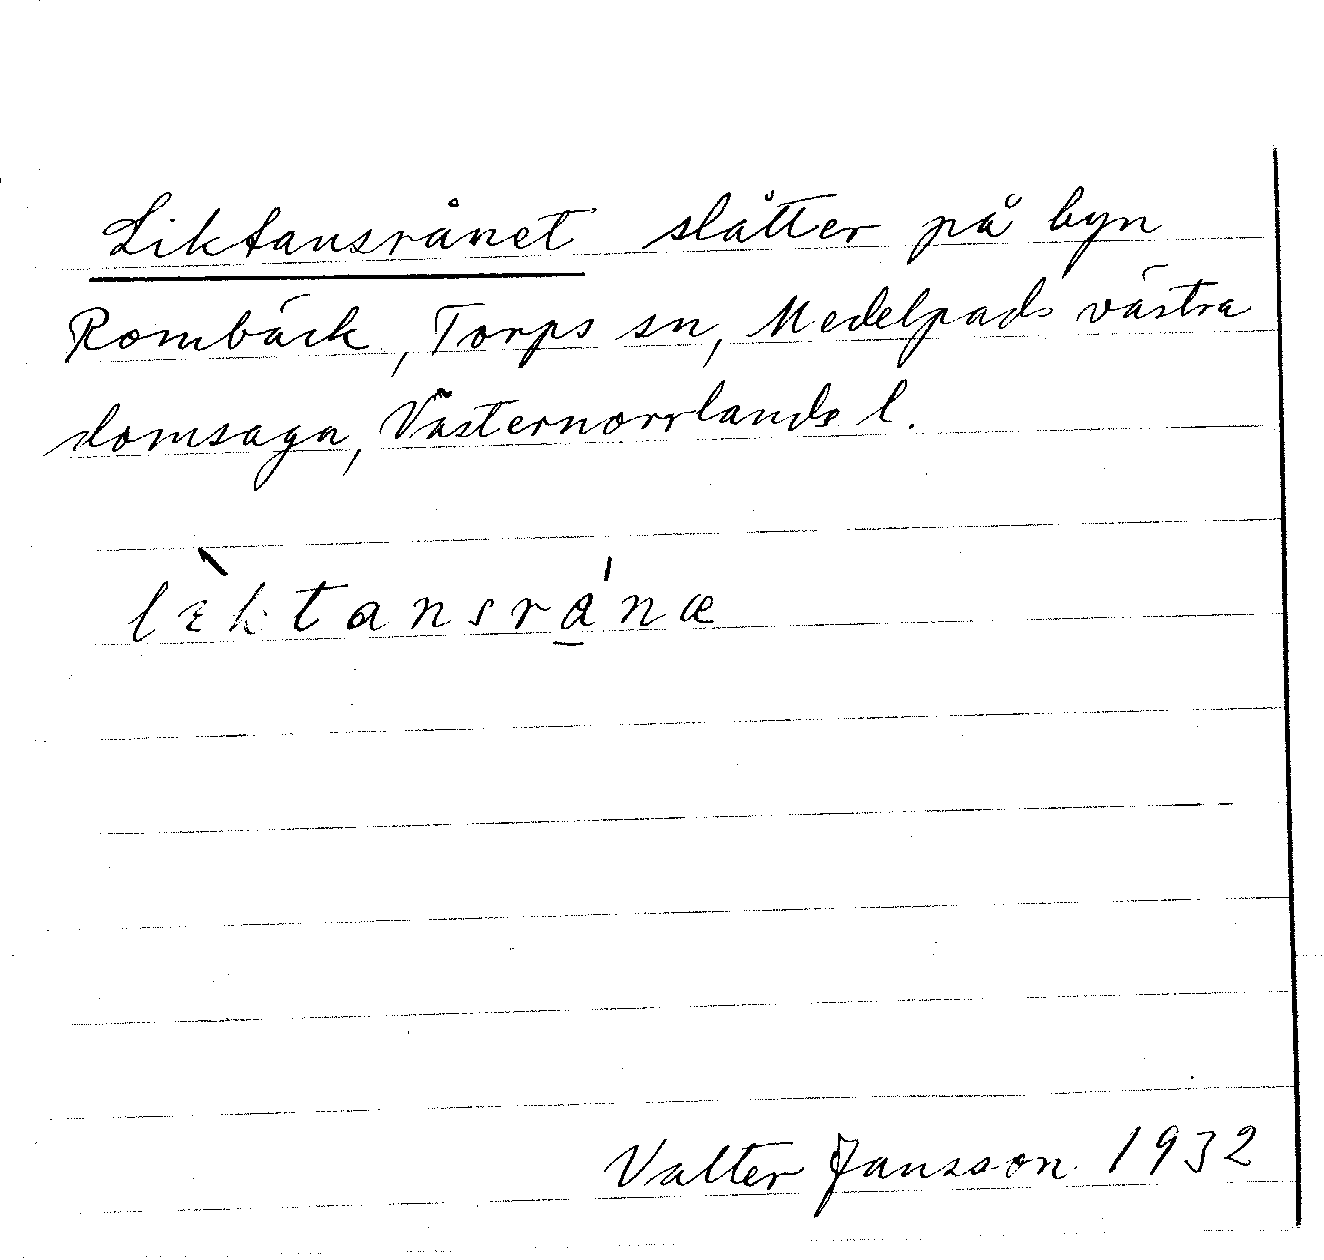 Liktansrånet slåtter på byn
Rombäck, Torps sn, Medelpads västra
domsaga, Västernorrlands l.
Valter Jansson 1932